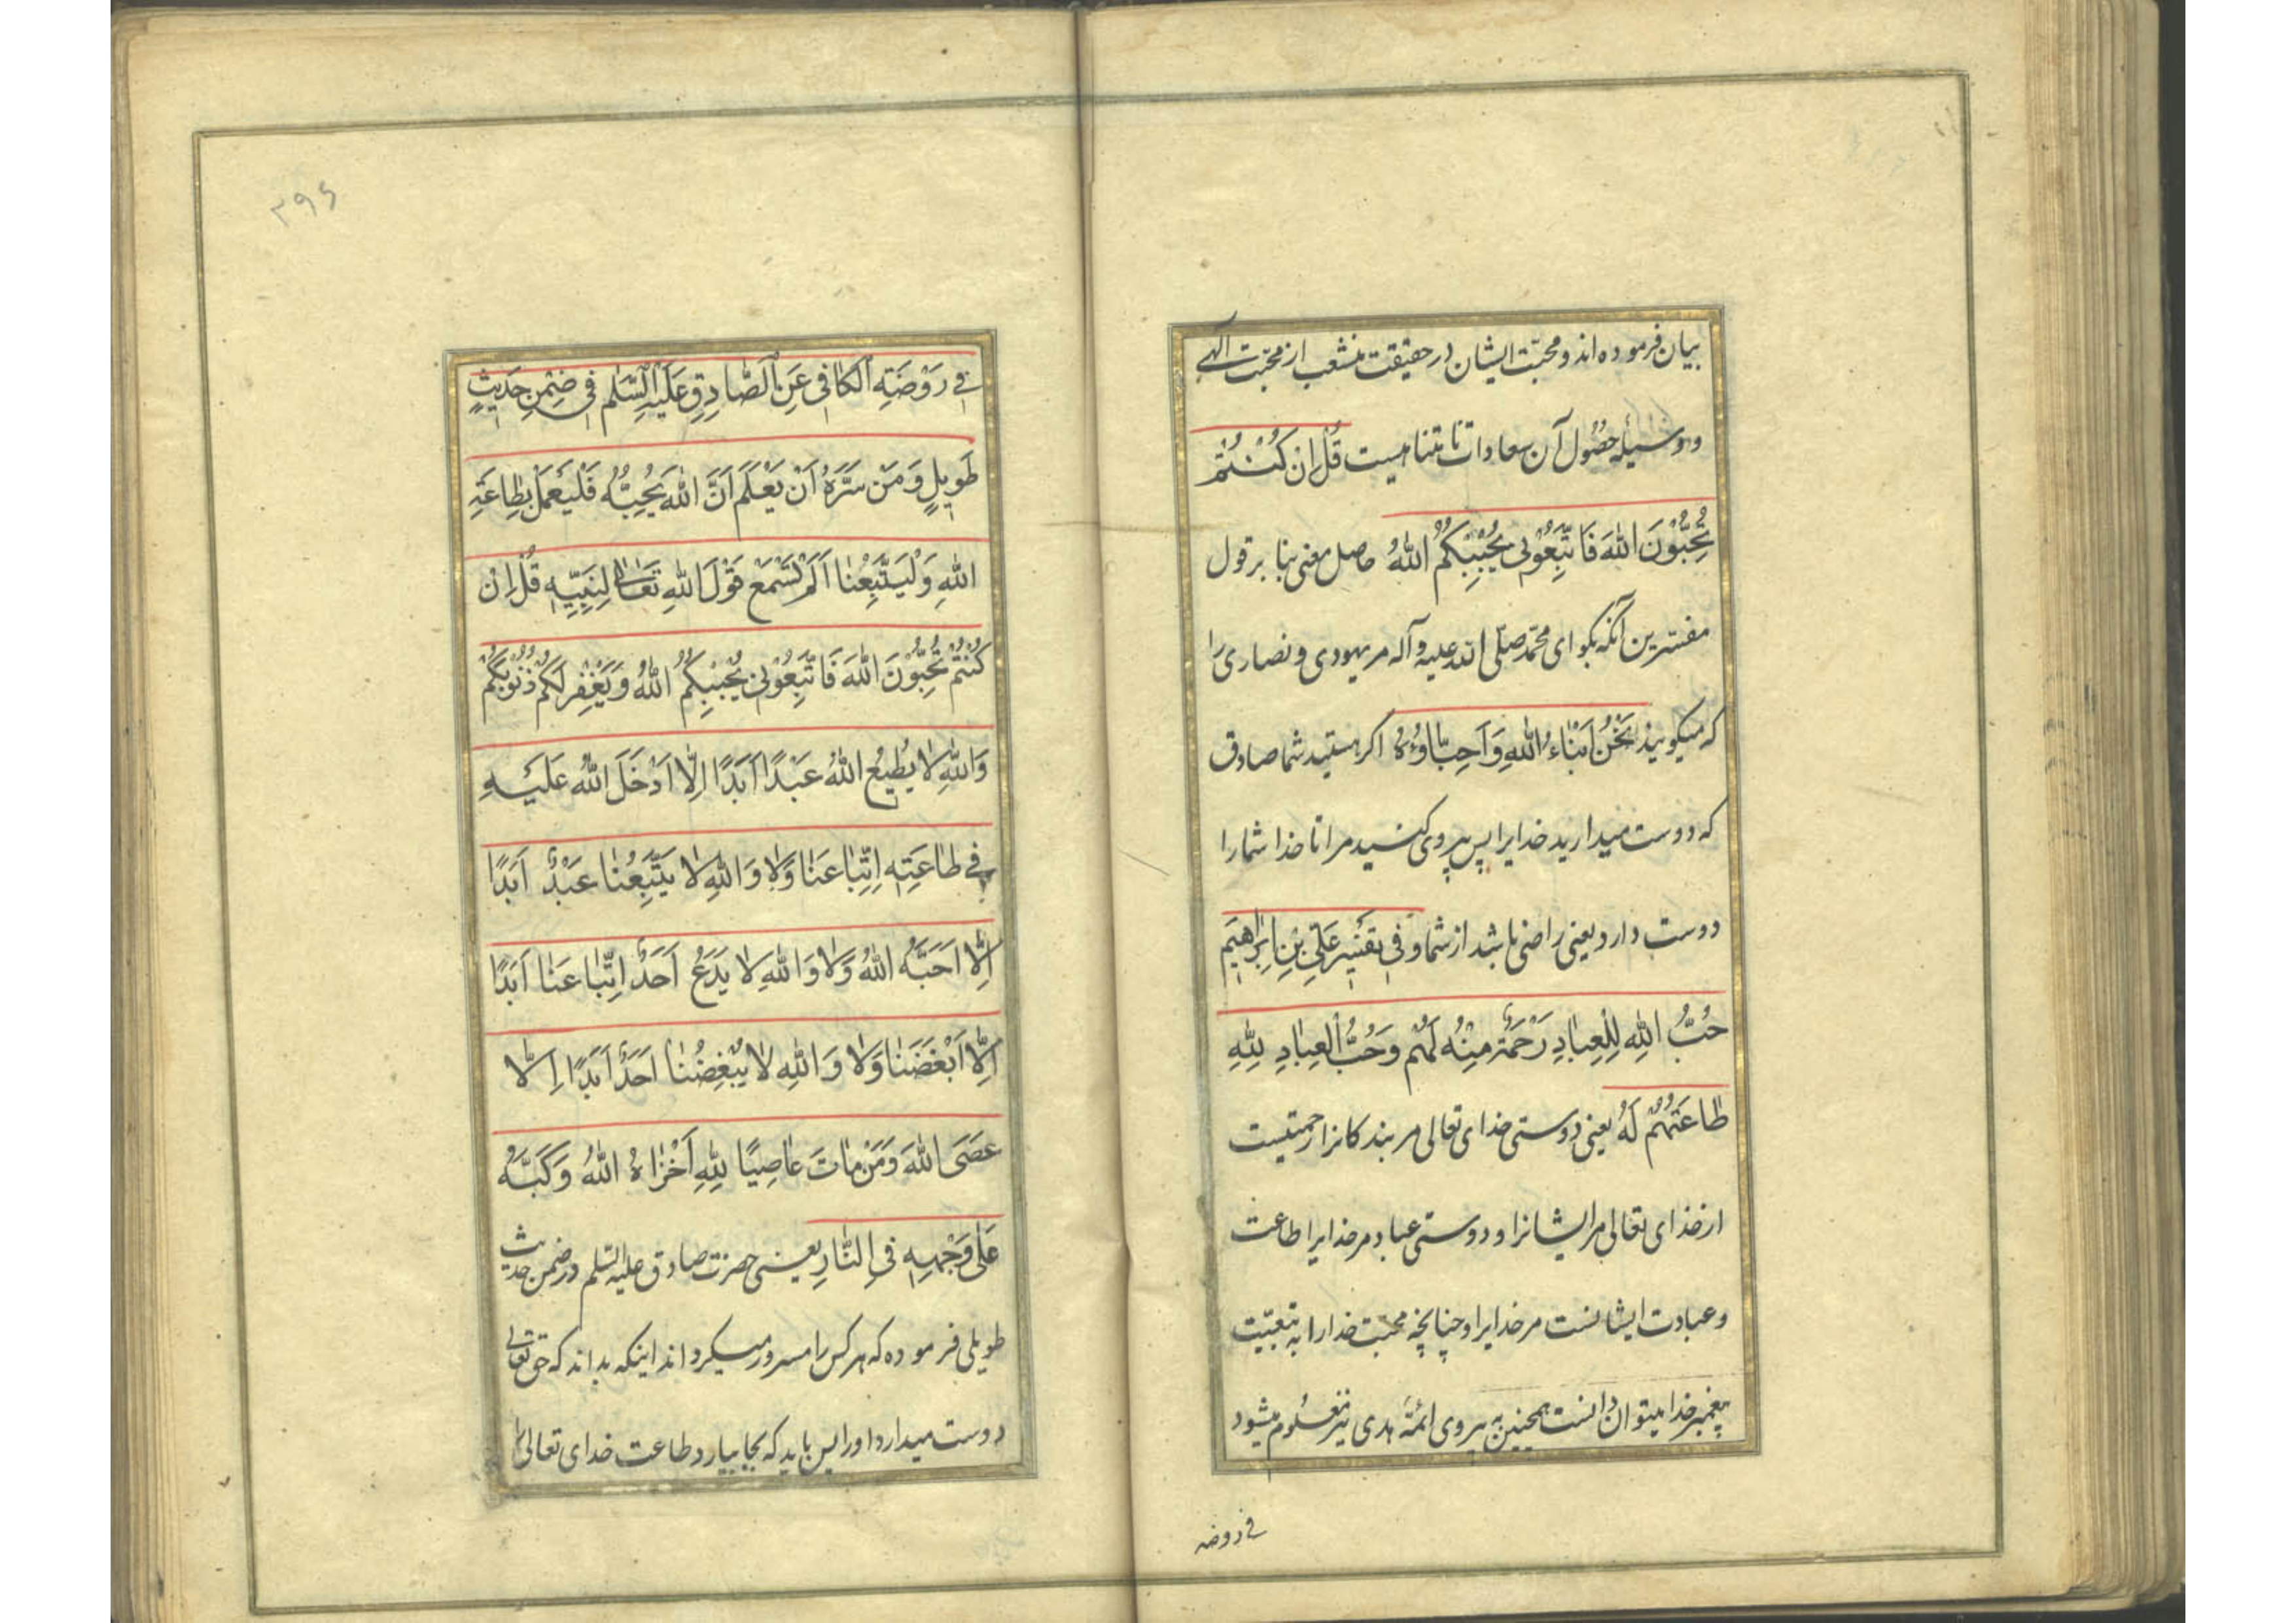 بیان فرموده‌اند و محبّت ایشان در حقیقت منشعب از محبّت الٓهی
و وسیلهٔ حصُول آن سعادات نامتناهیست قُلْ اِنْ كُنْتُمْ
تُحِبُّوْنَ اللّٰهَ فَاتَّبِعُوْنِی يُحْبِبْكُمُ اللّٰهُ حاصل معنی بنا بر قول
مفسّرین آنکه بکو ای محمّد صلّی اللّه علیه و آله مر یهودی و نصاری را
که میکویند نَحْنُ اَبْنٰاءُ اللّٰهِ وَ اَحِبّٰاؤُهُ اکر هستید شما صادق
که دوست میدارید خدایرا پس پیروی کنید مرا تا خدا شما را
دوست دارد یعنی راضی باشد از شما وَ فی تفسیر عَلِیِّ بْنِ اِبْرٰاهیم
حُبُّ اللّٰهِ لِلْعِبٰادِ رَحْمَةٌ مِنْهُ لَهُمْ وَ حُبُّ الْعِبٰادِ لِلّٰهِ
طٰاعَتُهُمْ لَهُ یعنی دوستی خدای تعالی مر بندکانرا رحمتیست
از خدای تعالی مر ایشانرا و دوستی عباد مر خدایرا طاعت
و عبادت ایشانست مر خدایرا و چنانچه محبّت خدا را به تبعیّت
پیغمبر خدا میتوان دانست همچنین به پیروی ائمّهٔ هدی نیز معلوم میشود
فی روضه
۳۹۶
فی رَوْضَةِ الْكٰافی عَنِ الصّٰادِقِ عَلَيْهِ السَّلٰم فی ضِمْنِ حَدیثٍ
طَویلٍ وَ مَنْ سَرَّهُ اَنْ يَعْلَمَ اَنَّ اللّٰهَ يُحِبُّهُ فَلْيَعْمَلْ بِطٰاعَةِ
اللّٰهِ وَلْيَتَّبِعْنٰا اَلَمْ تَسْمَعْ قَوْلَ اللّٰهِ تَعٰالٰی لِنَبِيِّهِ قُلْ اِنْ
كُنْتُمْ تُحِبُّوْنَ اللّٰهَ فَاتَّبِعُوْنی يُحْبِبْكُمُ اللّٰهُ وَ يَغْفِرْ لَكُمْ ذُنُوْبَكُمْ
وَاللّٰهِ لٰا يُطیعُ اللّٰهَ عَبْدًا اَبَدًا اِلّٰا اَدْخَلَ اللّٰهُ عَلَيْهِ
فی طٰاعَتِهِ اِتِّبٰاعَنٰا وَلٰا وَاللّٰهِ لٰا يَتَّبِعُنٰا عَبْدٌ اَبَدًا
اِلّٰا اَحَبَّهُ اللّٰهُ وَلٰا وَاللّٰهِ لٰا يَدَعُ اَحَدٌ اِتِّبٰاعَنٰا اَبَدًا
اِلّٰا اَبْغَضَنٰا وَلٰا وَاللّٰهِ لٰا يُبْغِضُنٰا اَحَدٌ اَبَدًا اِلّٰا
عَصَی اللّٰهَ وَ مَنْ مٰاتَ عٰاصِيًا لِلّٰهِ اَخْزٰاهُ اللّٰهُ وَ كَبَّهُ
عَلٰی وَجْهِهِ فِی النّٰارِ یعنی حضرت صادق علیه السّلم در ضمن حدیث
طویلی فرموده که هر کس را مسرور میکرداند اینکه بداند که حق تعالی
دوست میدارد او را پس باید که بجا بیارد طاعت خدای تعالی را